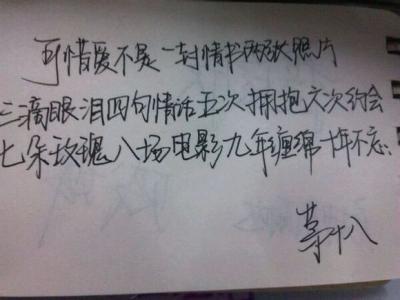 可惜爱不是一封情书两张照片
三滴眼泪四句情话五次拥抱六次约会
七朵玫瑰八场电影九年缠绵十年不忘..
茅十八